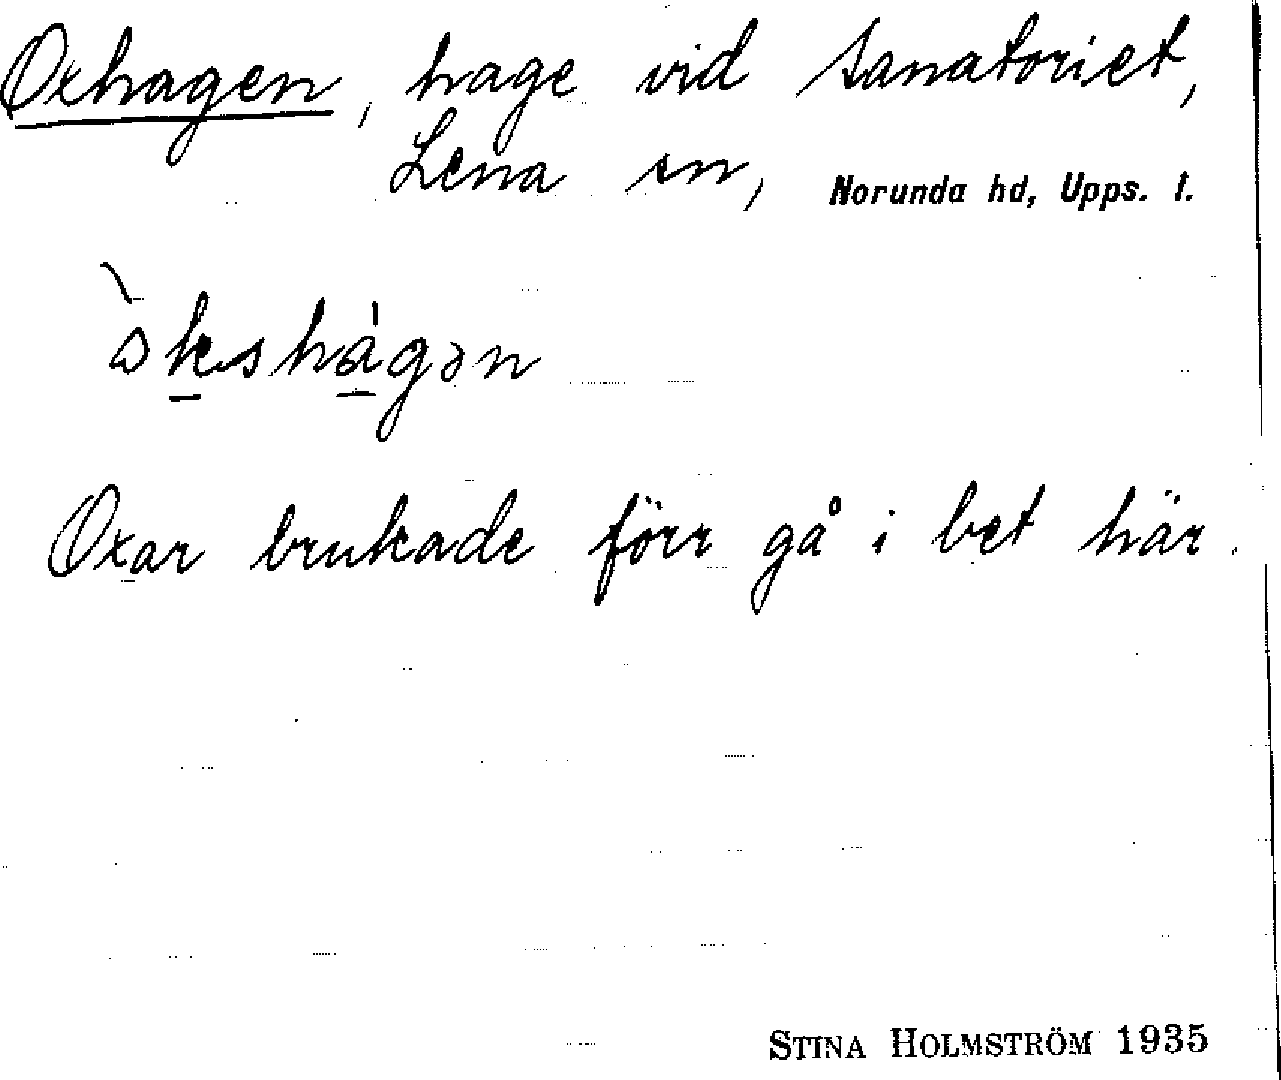 Oxhagen, hage vid sanatoriet,
Lena sn, Norunda hd, Upps. l.
Oxar brukade förr gå i bet här.
STINA HOLMSTRÖM 1935